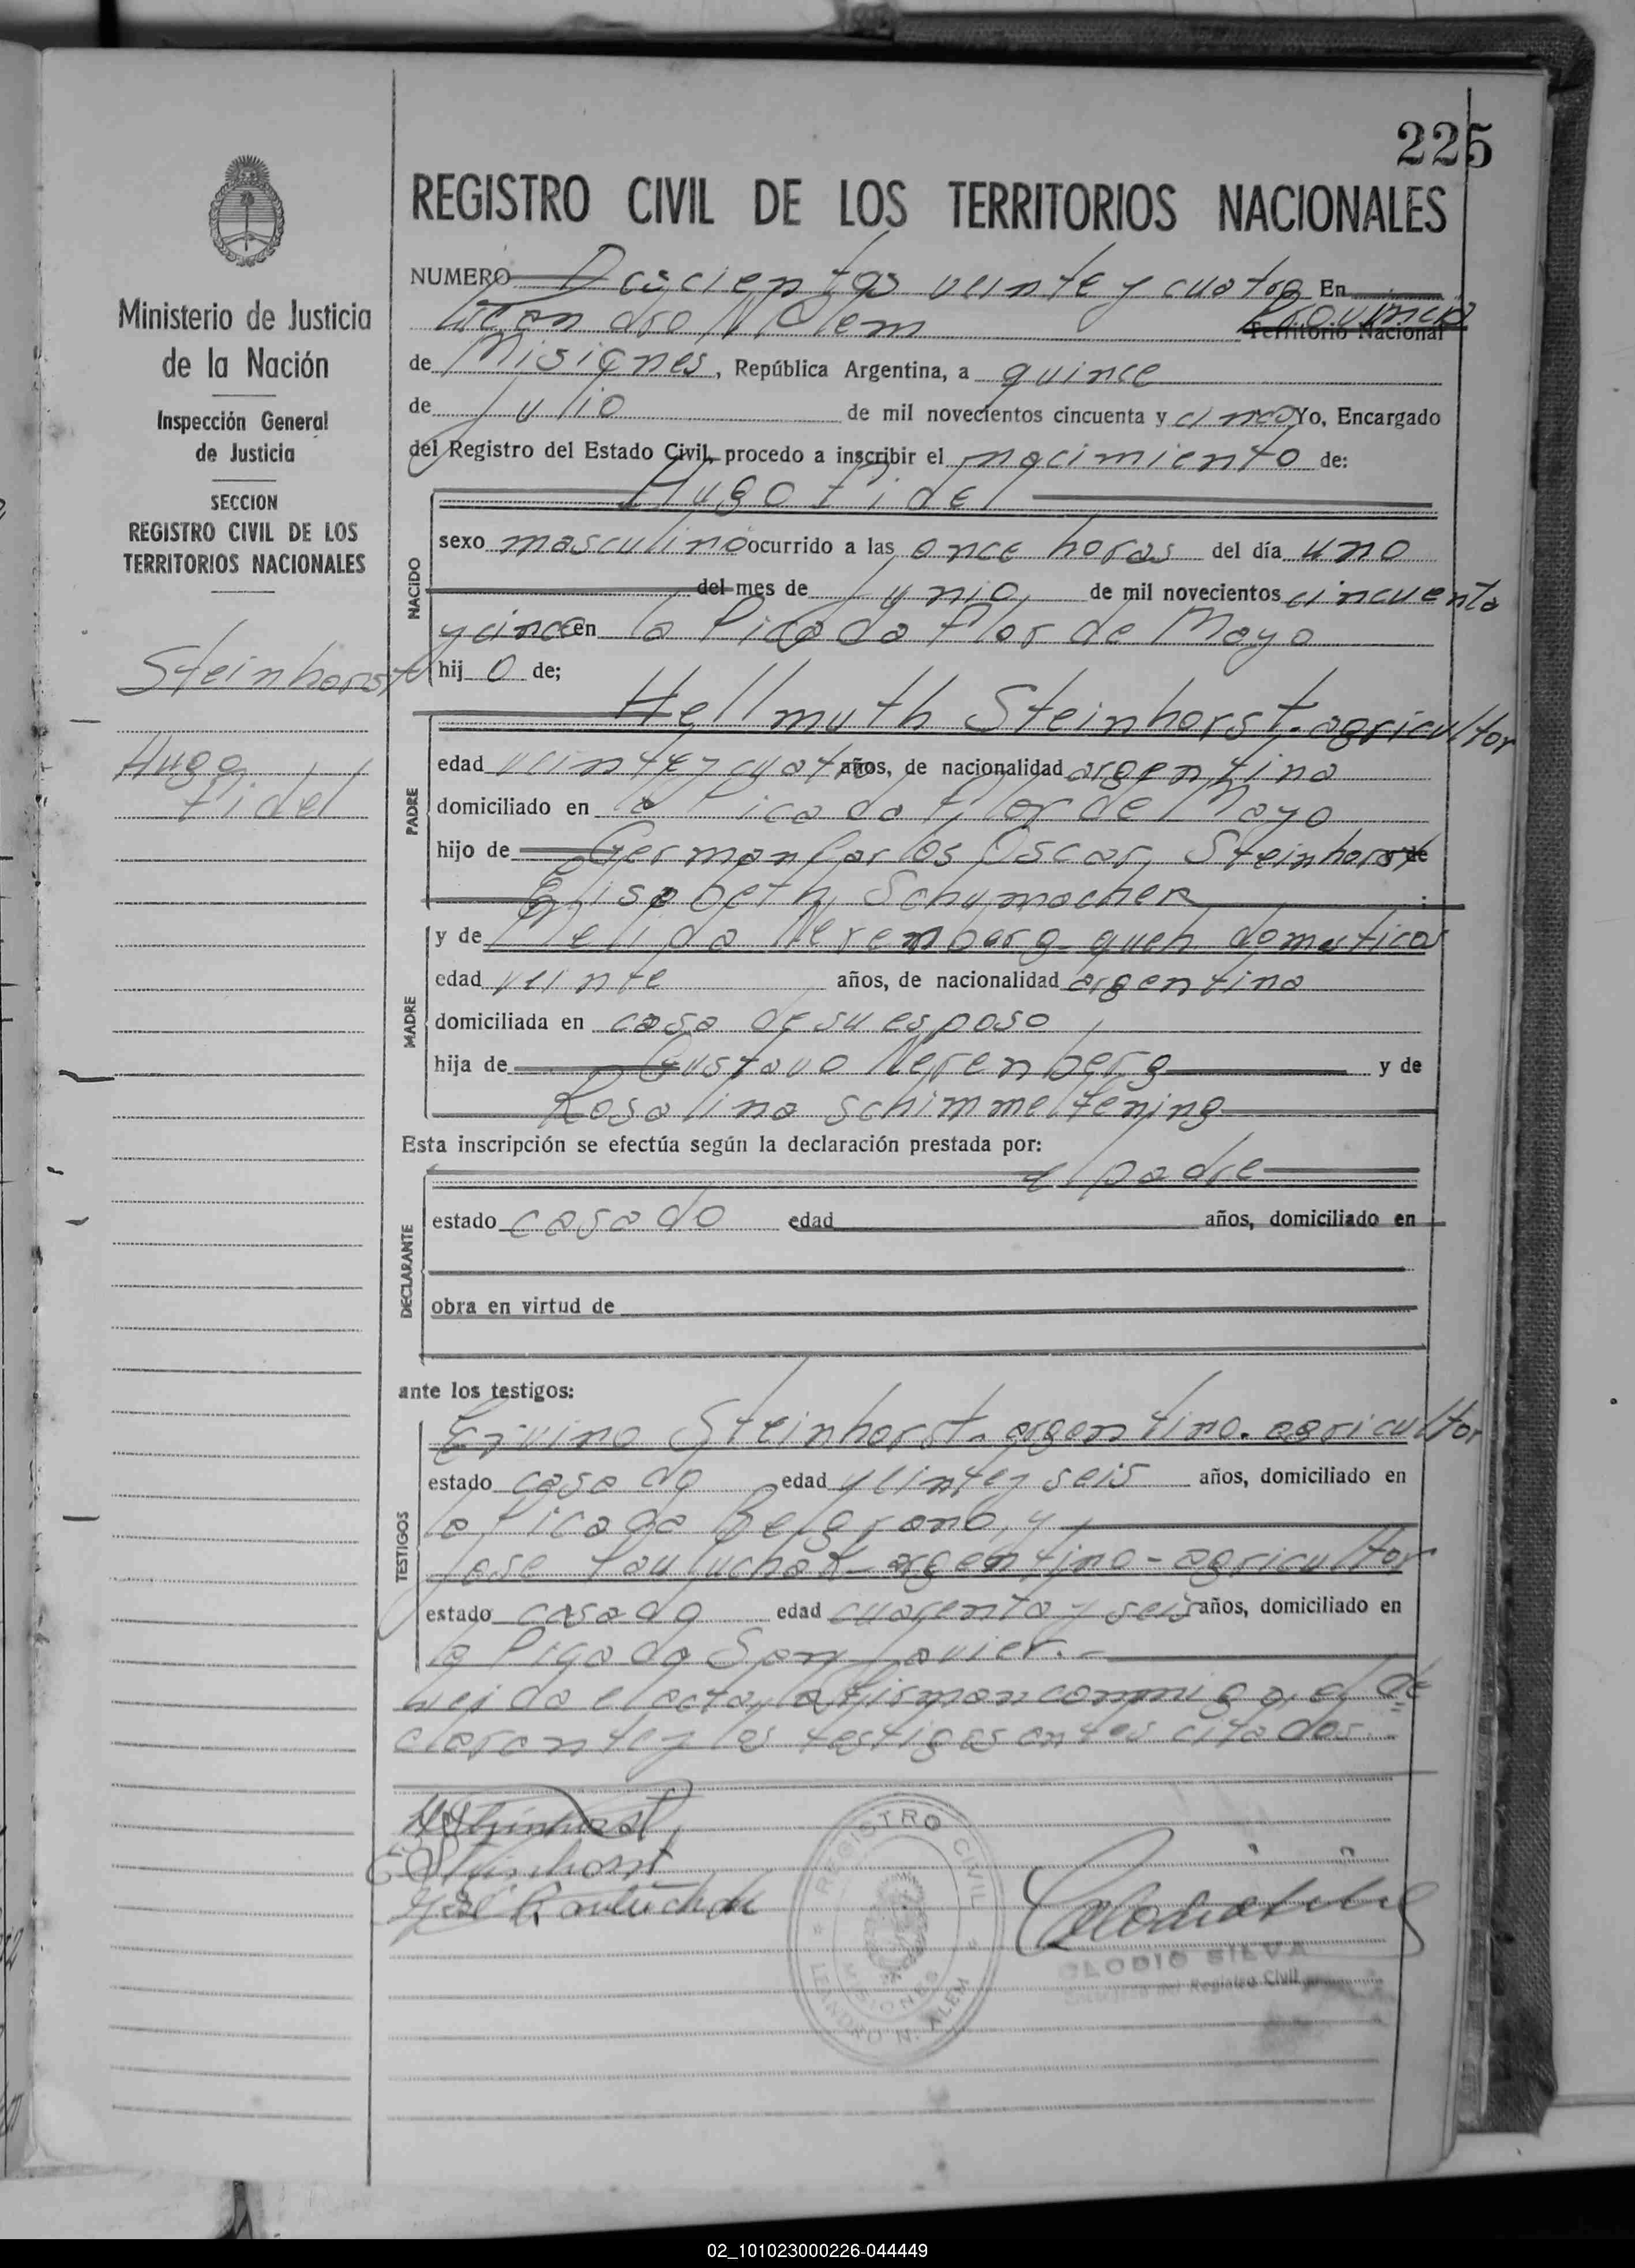 225
REGISTRO CIVIL DE LOS TERRITORIOS NACIONALES
Ministerio de Justicia
de la Nación
Inspección General
de Justicia
SECCION
REGISTRO CIVIL DE LOS
TERRITORIOS NACIONALES
Steinhorst
Hugo
Fidel
NUMERO Doscientos veinte y cuatro En
Leandro N Alem Provincia Territorio Nacional
de Misiones, República Argentina, a quince
de Julio de mil novecientos cincuenta y cinco Yo, Encargado
del Registro del Estado Civil, procedo a inscribir el nacimiento de:
Hugo Fidel
NACIDO
sexo masculino ocurrido a las once horas del día uno
del mes de Junio, de mil novecientos cincuenta
y cinco en la Picada Flor de Mayo
hij o de;
Hellmuth Steinhorst. agricultor
PADRE
edad veinte y cuatro años, de nacionalidad argentina
domiciliado en la Picada Flor de Mayo
hijo de German Carlos Oscar Steinhorst de
Elisabeth Schumacher
MADRE
y de Nerenberg - queh domesticos
edad veinte años, de nacionalidad argentina
domiciliada en casa de su esposo
hija de Gustavo Nerenberg y de
Rosalina Schimmelfening
Esta inscripción se efectúa según la declaración prestada por:
el padre
DECLARANTE
estado casado edad años, domiciliado en
obra en virtud de
ante los testigos:
TESTIGOS
Ervino Steinhorst. argentino. agricultor
estado casado edad veinte y seis años, domiciliado en
la Picada Belgrano, y
Jose Pauluchak - argentino - agricultor
estado casado edad cuarenta y seis años, domiciliado en
la Picada San Javier. -
Leida el acta, la firman conmigo, el de
clarante y los testigos antes citados. -
H Steinhorst
E Steinhorst
José Pauluchak
REGISTRO CIVIL
MISIONES
LEANDRO N. ALEM
CLODIO SILVA
del Registro Civil
02_101023000226-044449